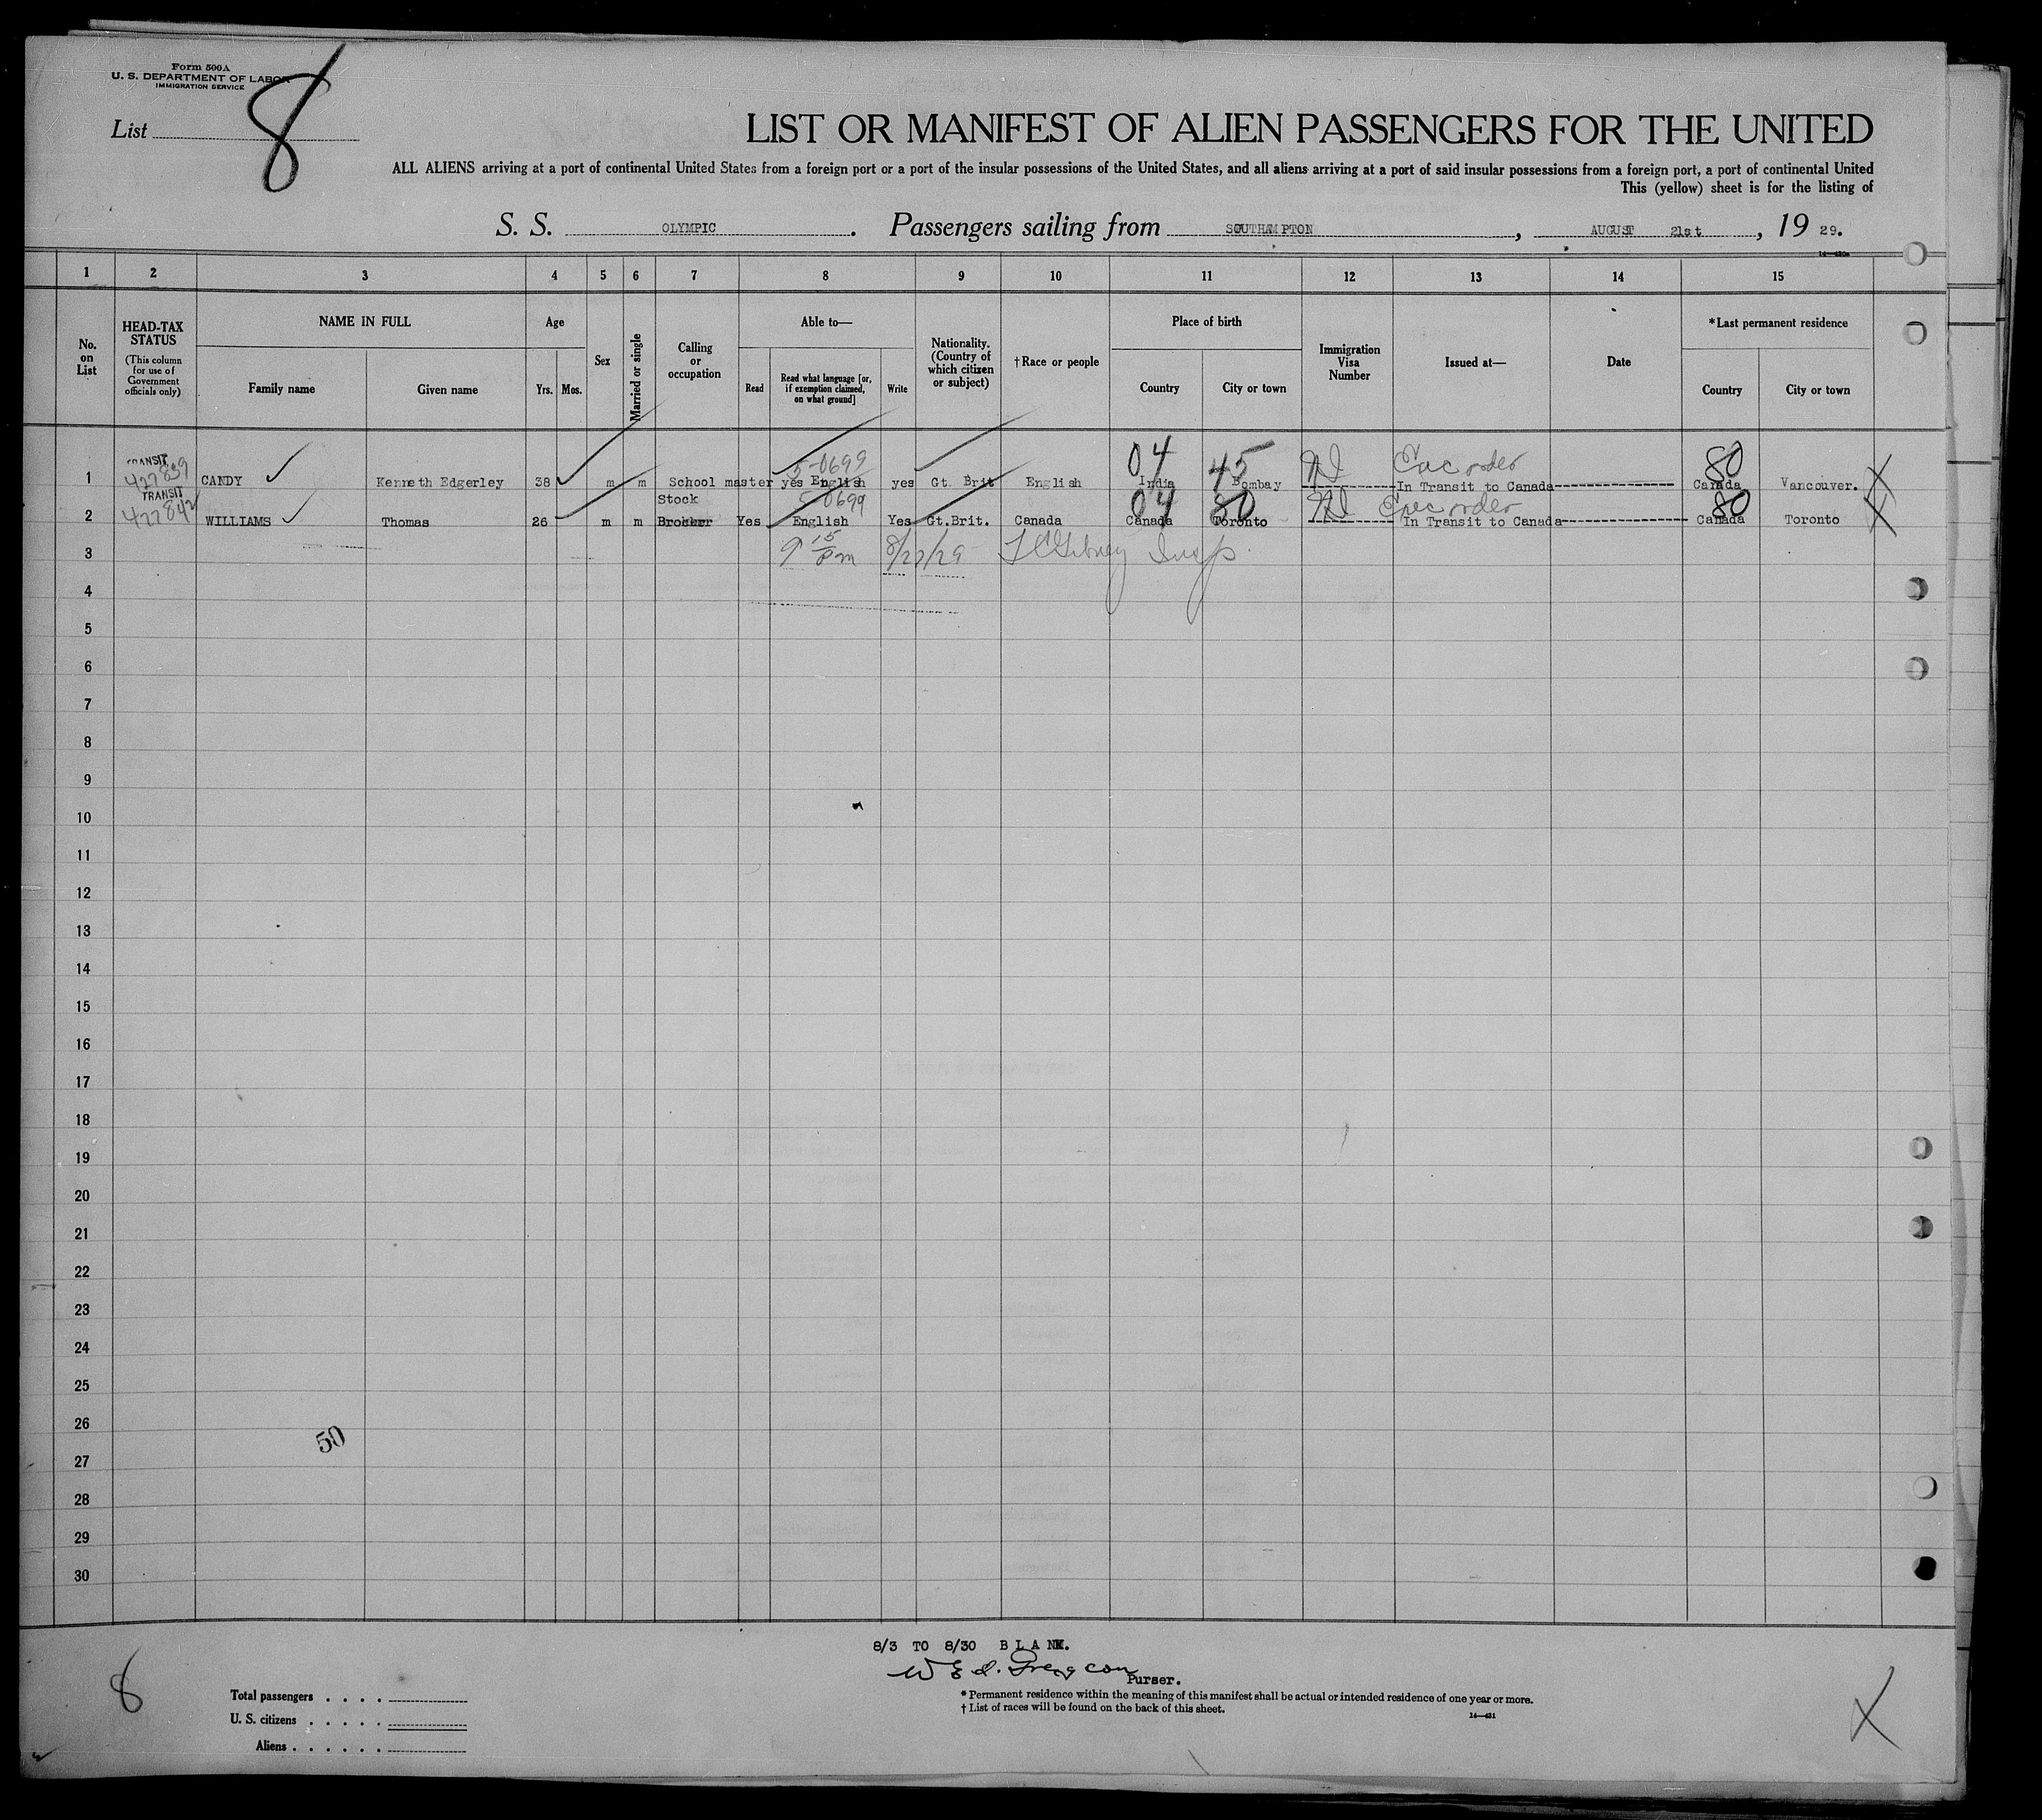 Form 500A
U. S. DEPARTMENT OF LABOR
IMMIGRATION SERVICE
List 8
LIST OR MANIFEST OF ALIEN PASSENGERS FOR THE UNITED
ALL ALIENS arriving at a port of continental United States from a foreign port or a port of the insular possessions of the United States, and all aliens arriving at a port of said insular possessions from a foreign port, a port of continental United
This (yellow) sheet is for the listing of
S. S. OLYMPIC . Passengers sailing from SOUTHAMPTON , AUGUST 21st , 19 29.
1 2 3 4 5 6 7 8 9 10 11 12 13 14 15
No. on List
HEAD-TAX STATUS
(This column for use of Government officials only)
NAME IN FULL
Family name Given name
Age
Yrs. Mos.
Sex
Married or single
Calling or occupation
Able to—
Read
Read what language [or, if exemption claimed, on what ground]
Write
Nationality. (Country of which citizen or subject)
†Race or people
Place of birth
Country City or town
Immigration Visa Number
Issued at—
Date
*Last permanent residence
Country City or town
TRANSIT 5-0699 04 45 80
1 427839 CANDY Kenneth Edgerley 38 m m School master yes English yes Gt. Brit English India Bombay In Transit to Canada Canada Vancouver.
TRANSIT Stock 0699 04 80 80
2 427842 WILLIAMS Thomas 26 m m Broker Yes English Yes Gt.Brit. Canada Canada Toronto In Transit to Canada Canada Toronto
3 9 15 pm 8/27/29 Insp.
4
5
6
7
8
9
10
11
12
13
14
15
16
17
18
19
20
21
22
23
24
25
26
50
27
28
29
30
8/3 TO 8/30 BLANK.
Purser.
8
Total passengers . . . .
U. S. citizens . . . . .
Aliens . . . . . .
* Permanent residence within the meaning of this manifest shall be actual or intended residence of one year or more.
† List of races will be found on the back of this sheet.
14—431
X